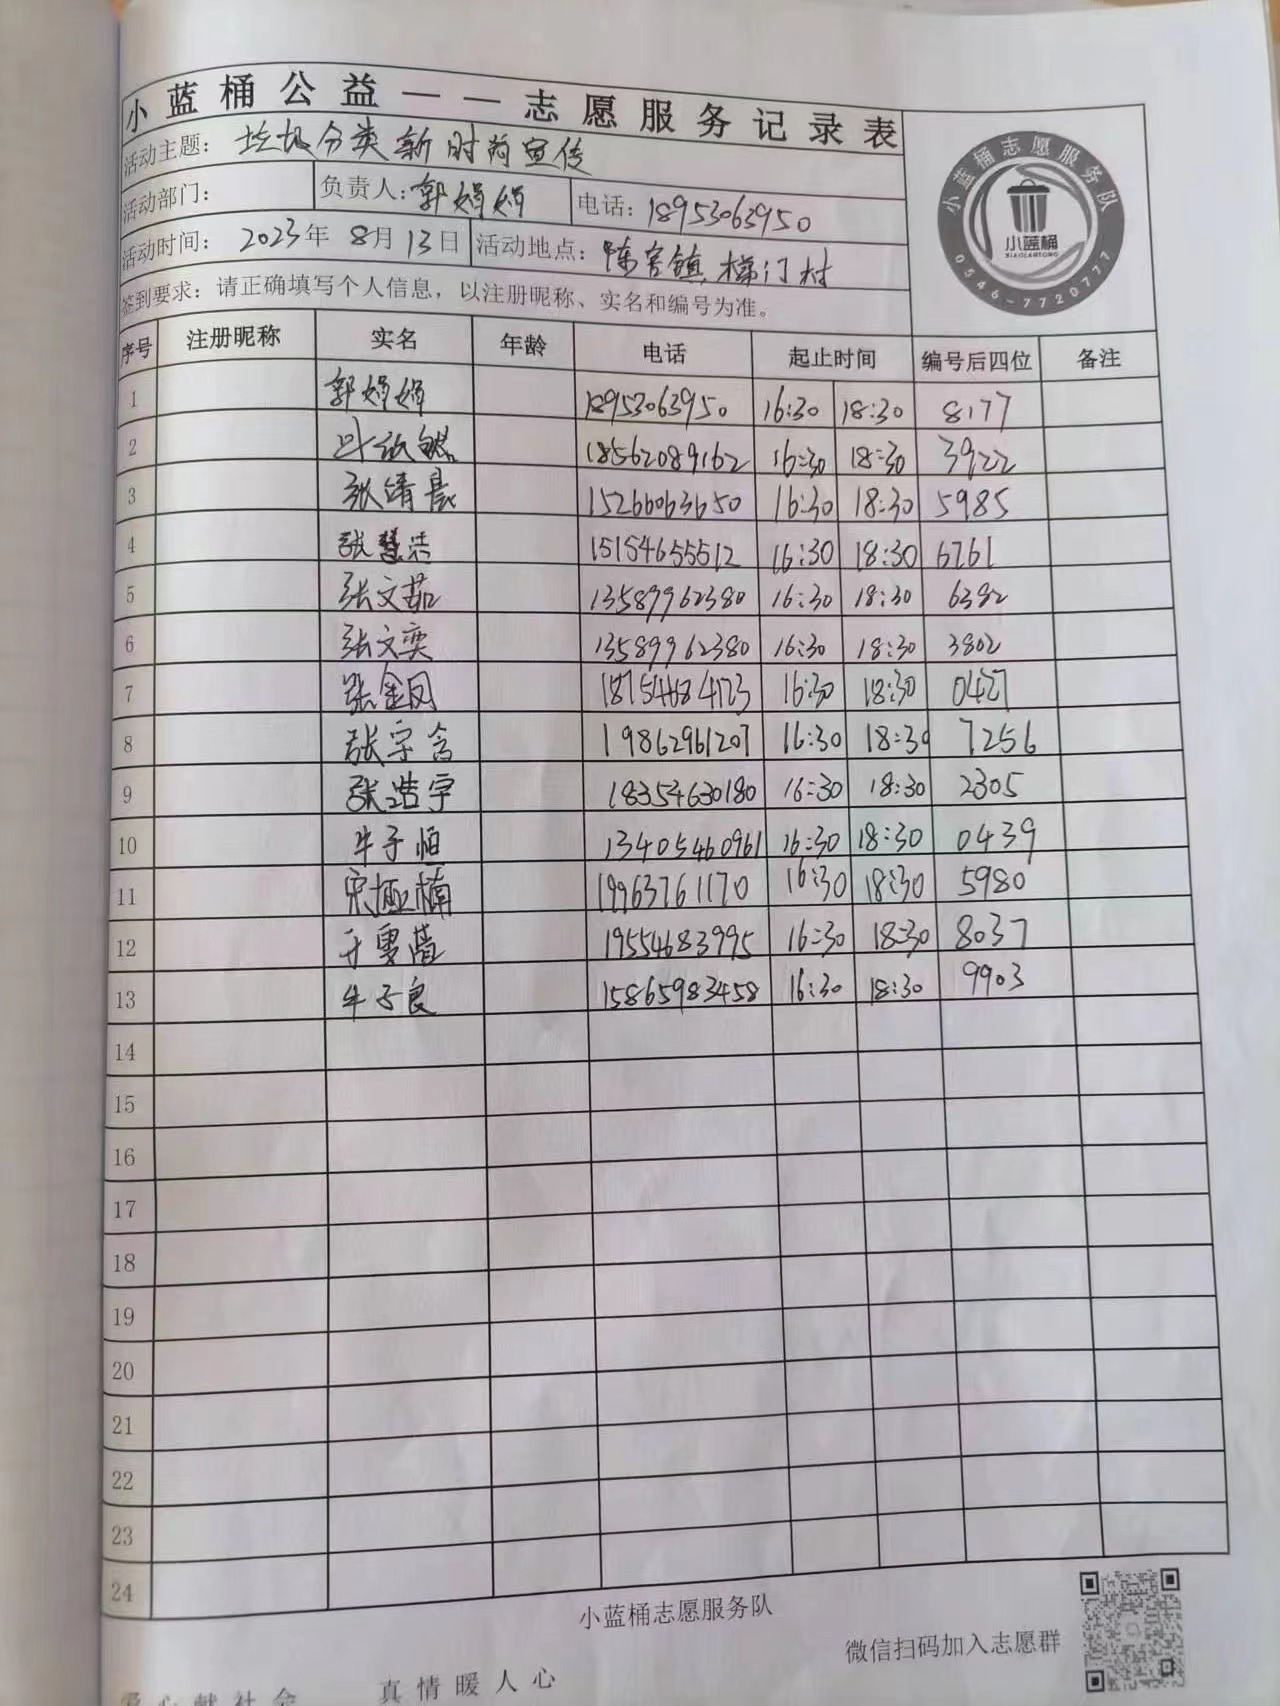 小蓝桶公益——志愿服务记录表
活动主题：垃圾分类新时尚宣传
活动部门： 负责人：郭娟娟 电话：18953063950
活动时间：2023年8月13日 活动地点：陈官镇梯门村
签到要求：请正确填写个人信息，以注册昵称、实名和编号为准。
小蓝桶志愿服务队
小蓝桶
XIAOLANTONG
0546-7720777
序号 注册昵称 实名 年龄 电话 起止时间 编号后四位 备注
1 郭娟娟 18953063950 16:30 18:30 8177
2 18562089162 16:30 18:30 3922
3 张靖晨 15266063650 16:30 18:30 5985
4 张慧洁 15154655512 16:30 18:30 6761
5 张文茹 13589962380 16:30 18:30 6382
6 张文奕 13589962380 16:30 18:30 3802
7 张金凤 18754684723 16:30 18:30 0427
8 张宇含 19862961207 16:30 18:30 7256
9 张浩宇 18354630180 16:30 18:30 2305
10 牛子恒 13405460961 16:30 18:30 0439
11 宋 楠 19963761170 16:30 18:30 5980
12 19554683995 16:30 18:30 8037
13 牛子良 15865983458 16:30 18:30 9903
14
15
16
17
18
19
20
21
22
23
24
小蓝桶志愿服务队
微信扫码加入志愿群
爱心献社会 真情暖人心